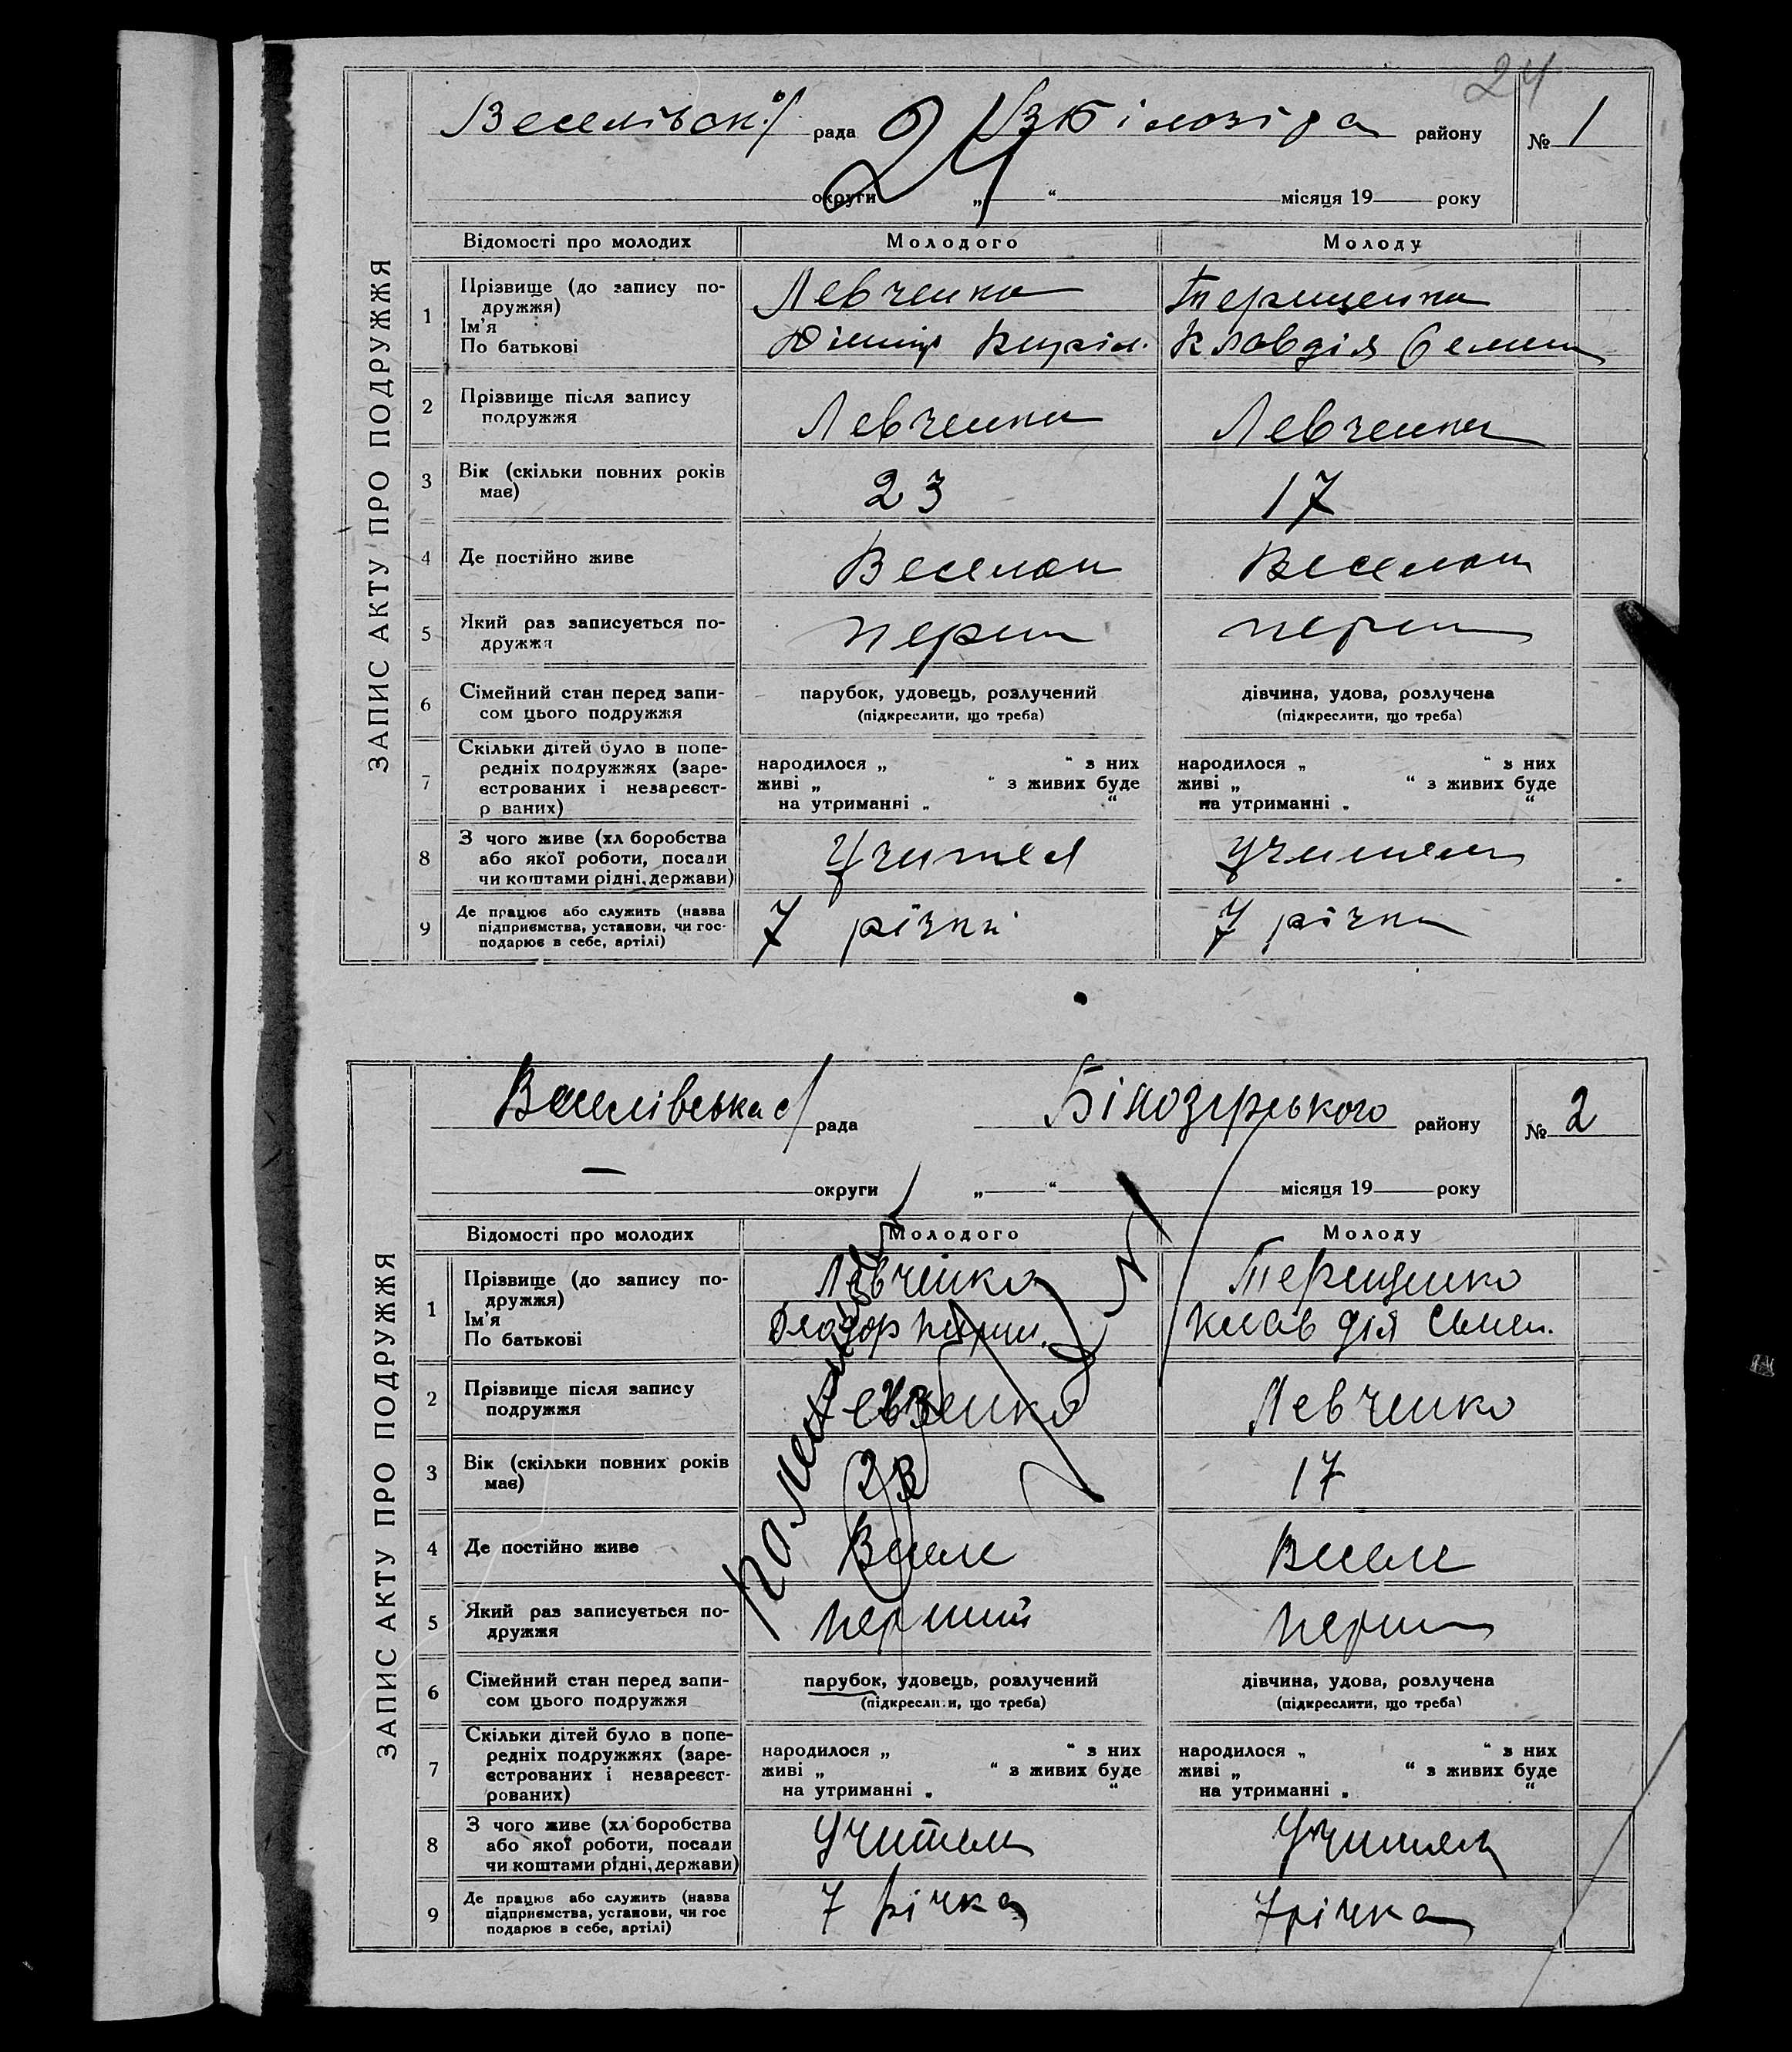 24
ЗАПИС АКТУ ПРО ПОДРУЖЖЯ
рада 24 району № 1
округи „ “ місяця 19 року
Відомості про молодих Молодого Молоду
1 Прізвище (до запису по-
дружжя)
Ім’я
По батькові
Левченко Терещенко
Клавдія Семен
2 Прізвище після запису
подружжя
Левченко Левченко
3 Вік (скільки повних років
має)
23 17
4 Де постійно живе
5 Який раз записується по-
дружжя
перш перш
6 Сімейний стан перед запи-
сом цього подружжя
парубок, удовець, розлучений дівчина, удова, розлучена
(підкреслити, що треба) (підкреслити, що треба)
7 Скільки дітей було в попе-
редніх подружжях (заре-
єстрованих і незареєст-
р ваних)
народилося „ “ з них народилося „ “ з них
живі „ “ з живих буде живі „ “ з живих буде
на утриманні „ “ на утриманні „ “
8 З чого живе (хл боробства
або якої роботи, посади
чи коштами рідні, держави)
Учител учител
9 Де працює або служить (назва
підприємства, установи, чи гос-
подарює в себе, артілі)
7 річки 7 річка
ЗАПИС АКТУ ПРО ПОДРУЖЖЯ
Веселівська с/ рада Білозерського району № 2
— округи „ “ місяця 19 року
Відомості про молодих Молодого Молоду
1 Прізвище (до запису по-
дружжя)
Ім’я
По батькові
Левченко Терещенко
Клавдія Семен.
2 Прізвище після запису
подружжя
Левченко Левченко
3 Вік (скільки повних років
має)
23 17
4 Де постійно живе
Веселе Веселе
5 Який раз записується по-
дружжя
перший перш
6 Сімейний стан перед запи-
сом цього подружжя
парубок, удовець, розлучений дівчина, удова, розлучена
(підкреслити, що треба) (підкреслити, що треба)
7 Скільки дітей було в попе-
редніх подружжях (заре-
єстрованих і незареєст-
рованих)
народилося „ “ з них народилося „ “ з них
живі „ “ з живих буде живі „ “ з живих буде
на утриманні „ “ на утриманні „ “
8 З чого живе (хл боробства
або якої роботи, посади
чи коштами рідні, держави)
Учитель Учитель
9 Де працює або служить (назва
підприємства, установи, чи гос
подарює в себе, артілі)
7 річка 7 річка